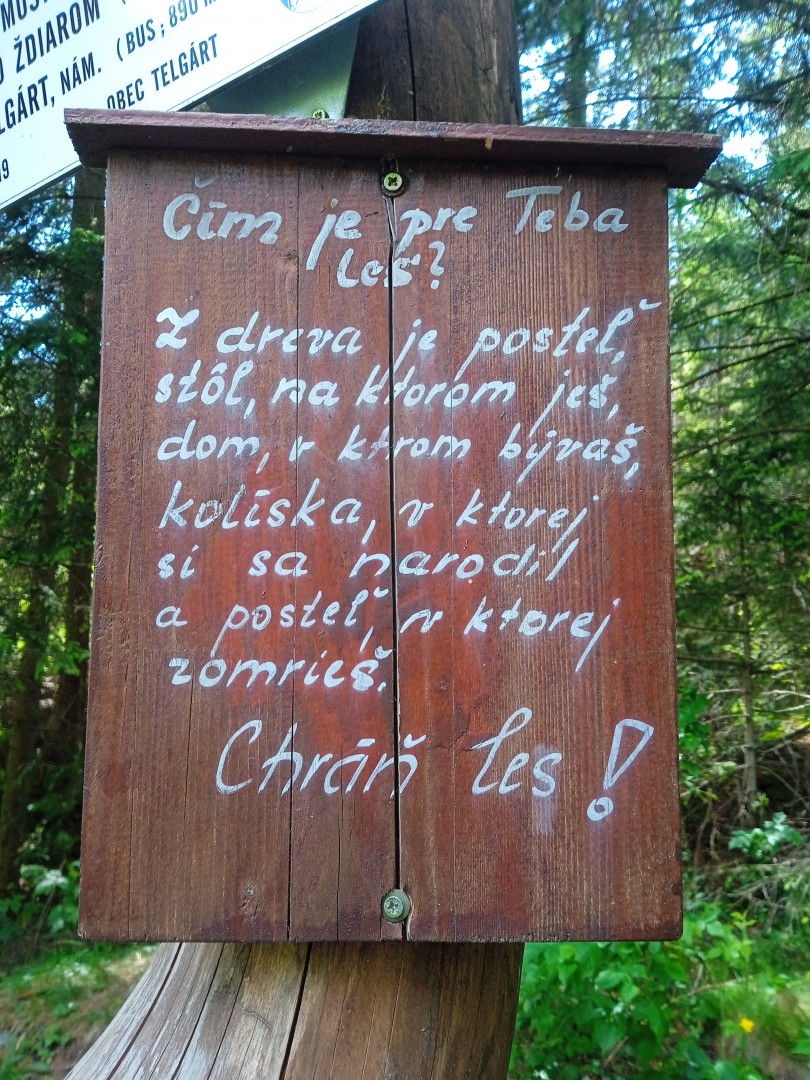 O ŽDIAROM
LGÁRT, NÁM. (BUS; 890 m
OBEC TELGÁRT
Čím je pre Teba
les?
Z dreva je posteľ,
stôl, na ktorom ješ,
dom, v ktrom bývaš,
kolíska, v ktorej
si sa narodil
a posteľ, v ktorej
zomrieš.
Chráň les!